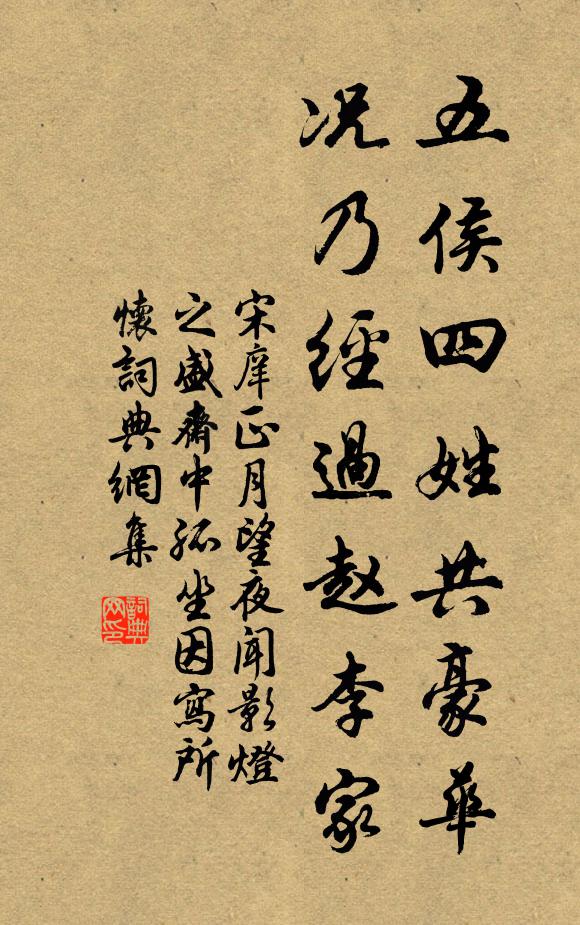 五侯四姓共豪華
况乃經過趙李家
宋庠正月望夜聞影燈
之盛齋中孤坐因寫所
懷詞典網集
詞典
网印